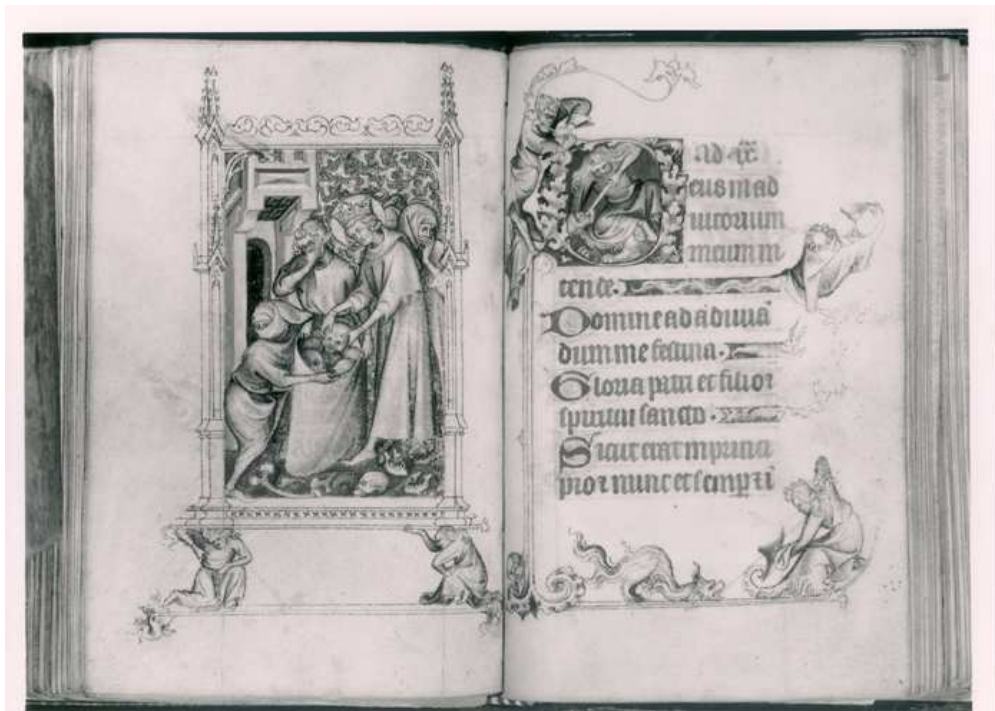 ad ix
Deus in ad
iutorium
meum in
tende.
Domine ad adiuuā
dum me festina.
Gloria patri et filio ⁊
spiritui sancto.
Sicut erat in princi
pio ⁊ nunc et semp̄ ⁊ ī